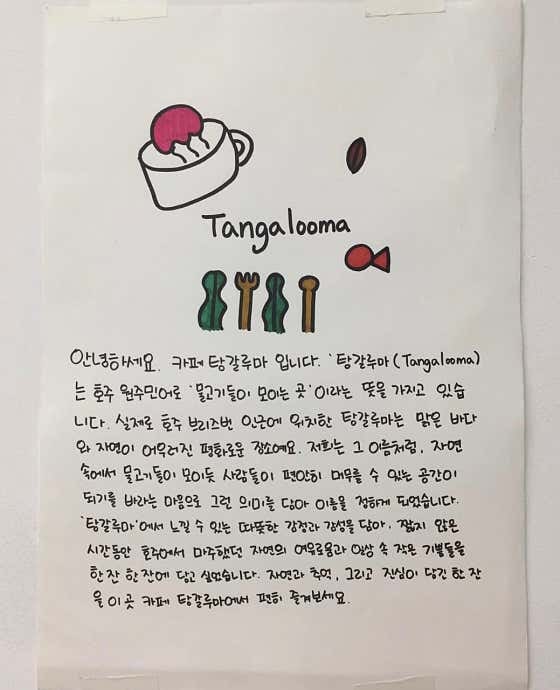 Tangalooma
안녕하세요. 카페 탕갈루마 입니다. '탕갈루마(Tangalooma)
는 호주 원주민어로 '물고기들이 모이는 곳'이라는 뜻을 가지고 있습
니다. 실제로 호주 브리즈번 인근에 위치한 탕갈루마는 맑은 바다
와 자연이 어우러진 평화로운 장소예요. 저희는 그 이름처럼, 자연
속에서 물고기들이 모이듯 사람들이 편안히 머무를 수 있는 공간이
되기를 바라는 마음으로 그런 의미를 담아 이름을 정하게 되었습니다.
'탕갈루마'에서 느낄 수 있는 따뜻한 감정과 감성을 담아, 짧지 않은
시간동안 호주에서 마주했던 자연의 여유로움과 일상 속 작은 기쁨들을
한잔 한잔에 담고 싶었습니다. 자연과 추억, 그리고 진심이 담긴 한 잔
을 이 곳 카페 탕갈루마에서 편히 즐겨보세요.